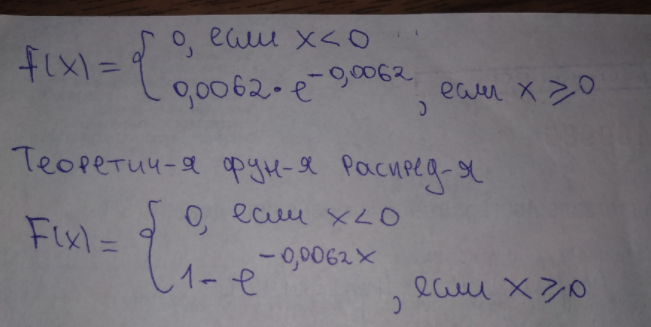 f(x) = { 0, если x < 0
0,0062 · e^{-0,0062}, если x ⩾ 0
Теоретич-я фун-я распред-я
F(x) = { 0, если x < 0
1 - e^{-0,0062x}, если x ⩾ 0